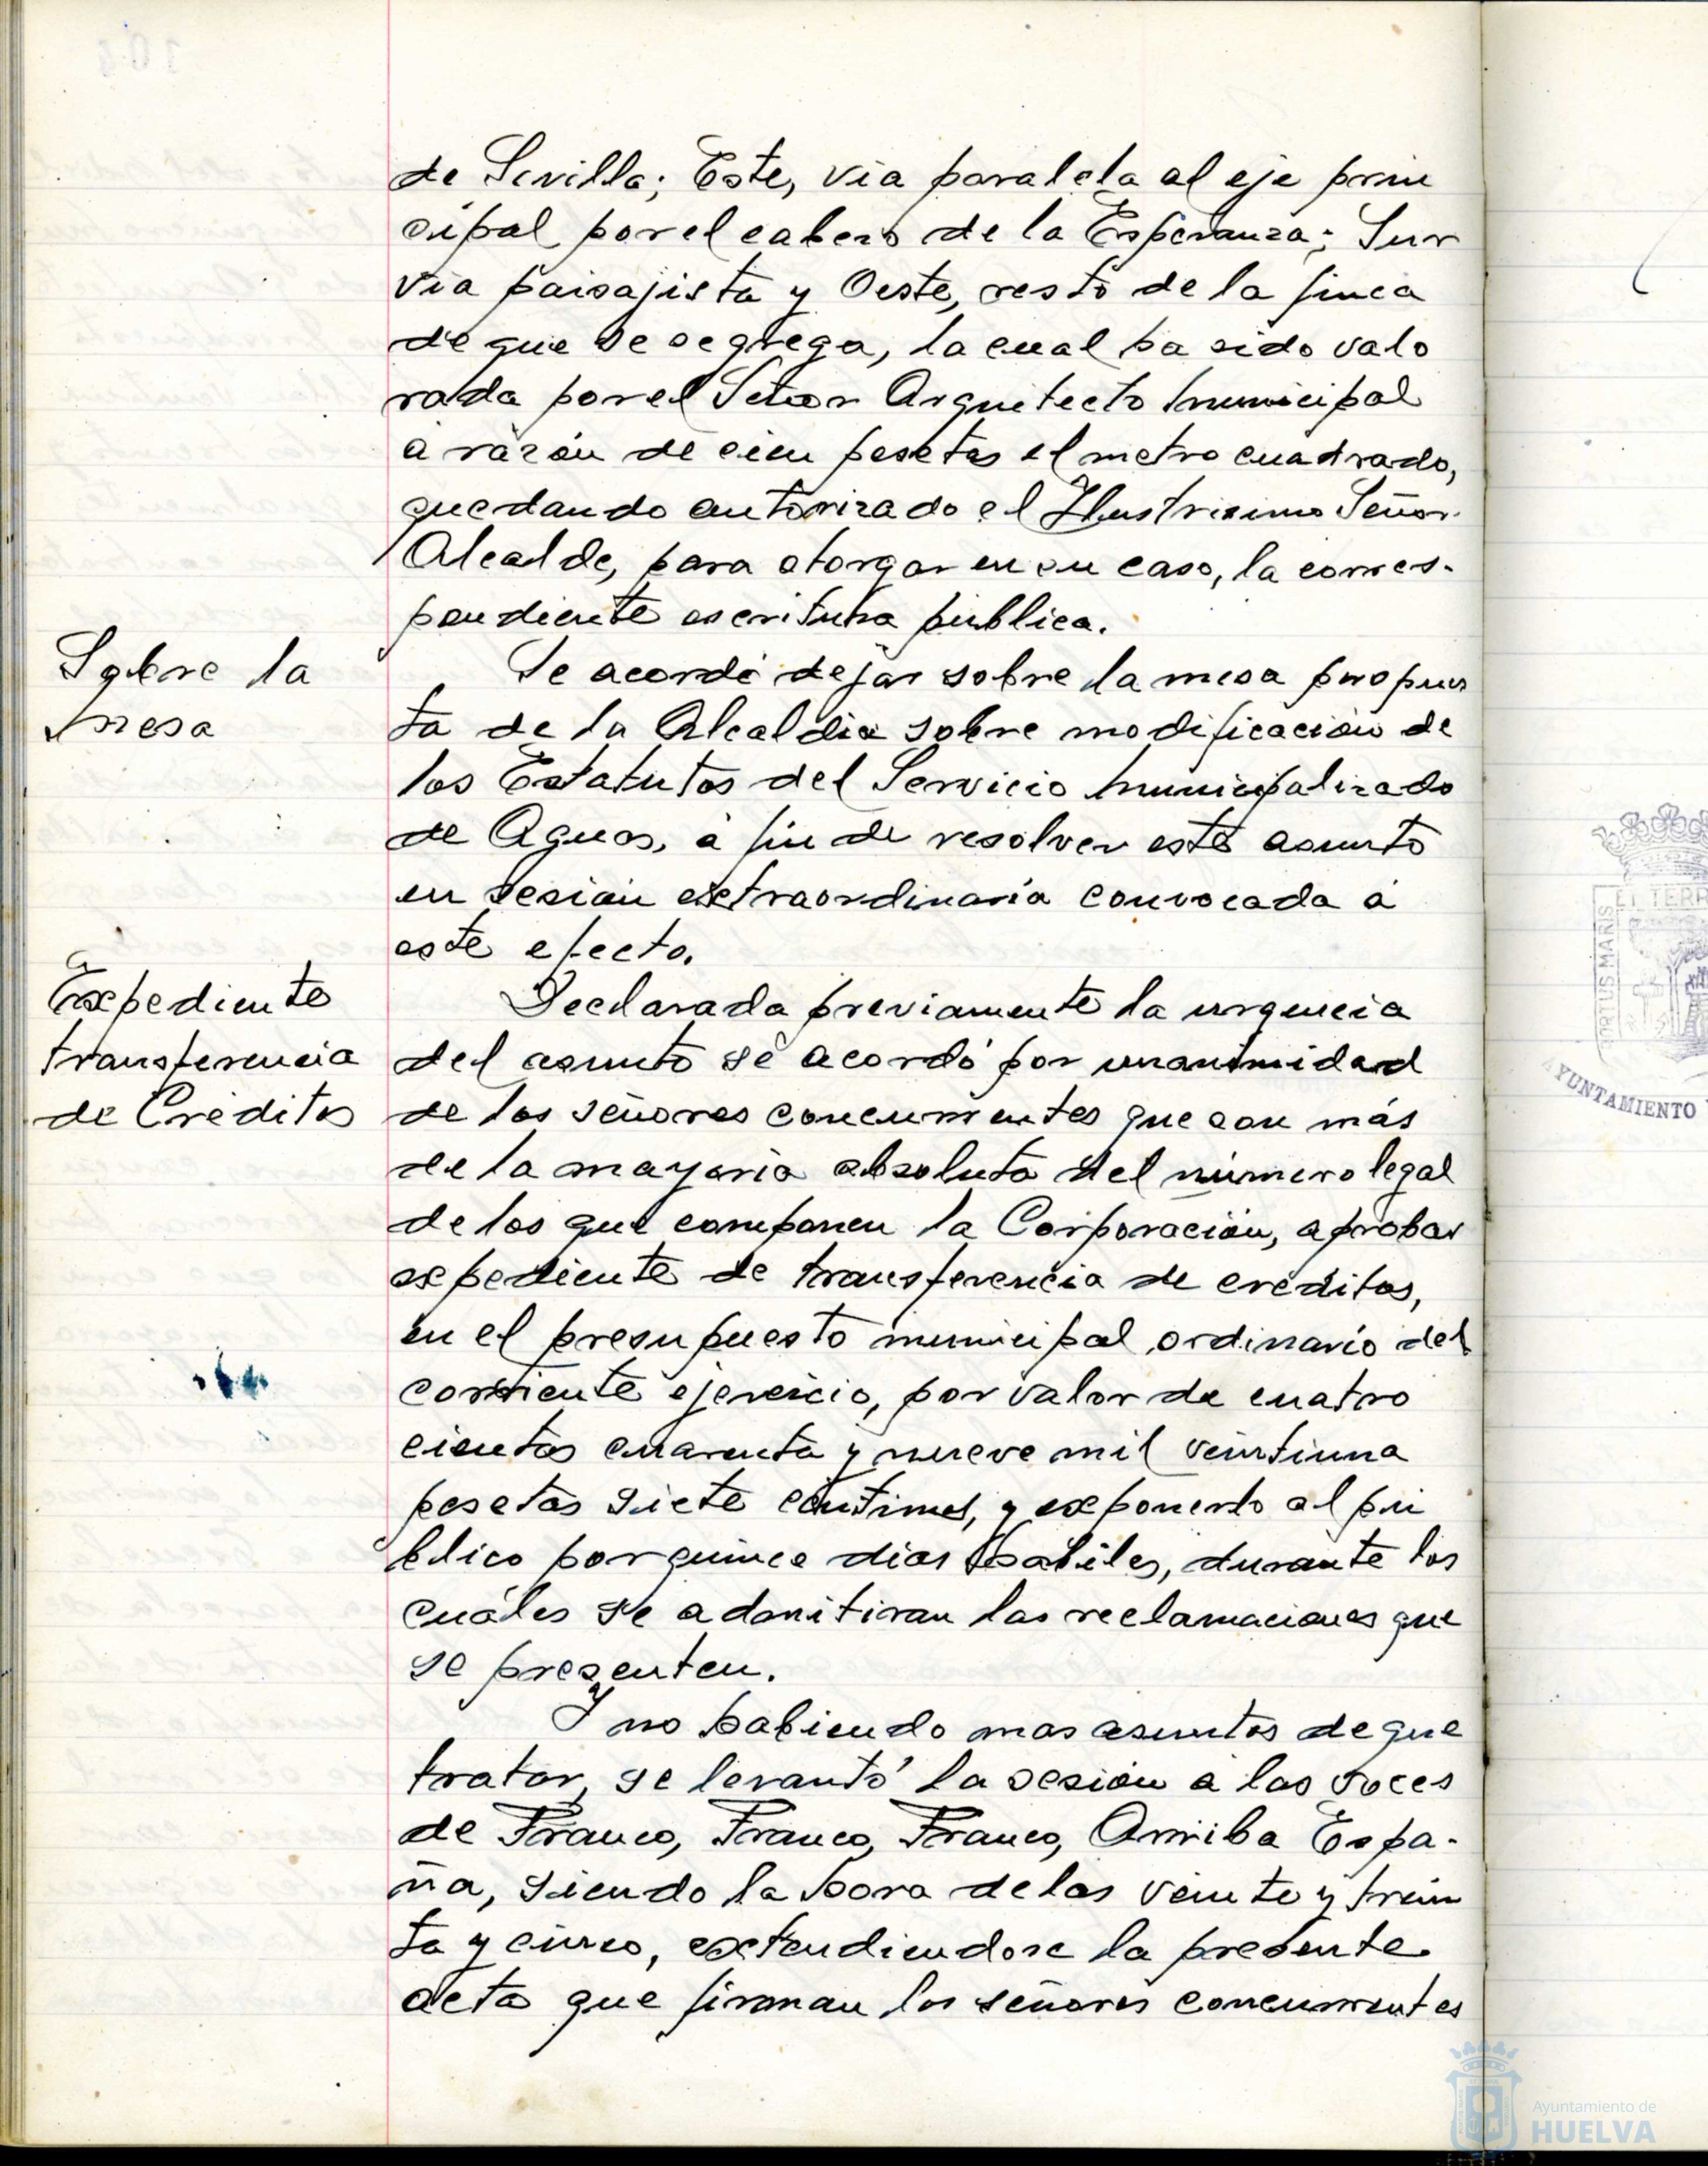 de Sevilla; Este, via paralela al eje prin
cipal por el cabezo de la Esperanza; Sur
via paisajista y Oeste, resto de la finca
de que se segrega, la cual ha sido valo
rada por el Señor Arquitecto Municipal
a razón de cien pesetas el metro cuadrado,
quedando autorizado el Ilustrisimo Señor
Alcalde, para otorgar en su caso, la corres-
pondiente escritura pública.
Sobre la
mesa
Se acordó dejar sobre la mesa propues
ta de la Alcaldia sobre modificación de
los Estatutos del Servicio Municipalizado
de Aguas, a fin de resolver este asunto
en sesión extraordinaria convocada a
este efecto.
Expediente
transferencia
de Créditos
Declarada previamente la urgencia
del asunto se acordó por unanimidad
de los señores concurrentes que son más
de la mayoria absoluta del número legal
de los que componen la Corporación, aprobar
expediente de transferencia de créditos,
en el presupuesto municipal ordinario del
corriente ejercicio, por valor de cuatro
cientas cuarenta y nueve mil veintiuna
pesetas siete céntimos, y exponerlo al pú
blico por quince dias habiles, durante los
cuáles se admitiran las reclamaciones que
se presenten.
Y no habiendo mas asuntos de que
tratar, se levantó la sesión a las voces
de Franco, Franco, Franco, Arriba Espa-
ña, siendo la hora de las veinte y trein
ta y cinco, extendiendose la presente
acta que firman los señores concurrentes
EL TERR
PORTUS MARIS
AYUNTAMIENTO
Ayuntamiento de
HUELVA